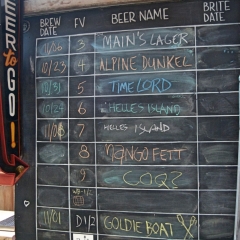 BREW DATE FV BEER NAME BRITE DATE
11/06 3 MAIN'S LAGER
10/23 4 ALPINE DUNKEL
10/31 5 TIME LORD
10/24 6 HELLES ISLAND
11/08 7 HELLES ISLAND
8 MANGO FETT
9 COQ?
11/01 DY2 GOLDIE BOAT
TO GO!